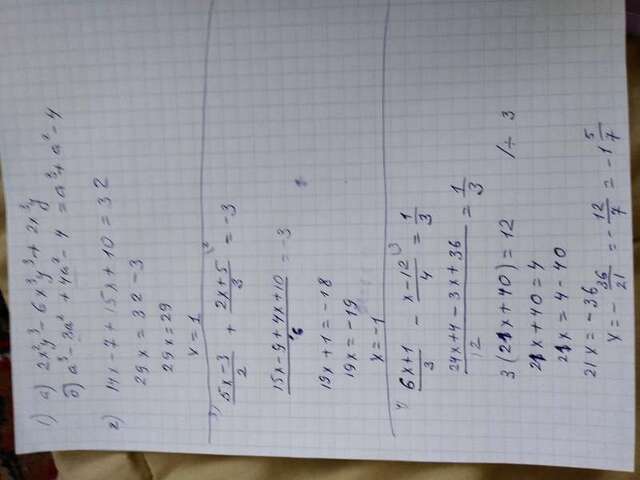 1) а) 2x²y³ - 6x³y³ + 2x³y
б) a³ - 3a² + 4a² - 4 = a³ + a² - 4
2) 14x - 7 + 15x + 10 = 32
29x = 32 - 3
29x = 29
x = 1
3) (5x - 3)/2 + (2x + 5)/3 = -3
(15x - 9 + 4x + 10)/6 = -3
19x + 1 = -18
19x = -19
x = -1
4) (6x + 1)/3 - (x - 12)/4 = 1/3
(24x + 4 - 3x + 36)/12 = 1/3
3(21x + 40) = 12 /÷ 3
21x + 40 = 4
21x = 4 - 40
21x = -36
x = -36/21 = -12/7 = -1 5/7